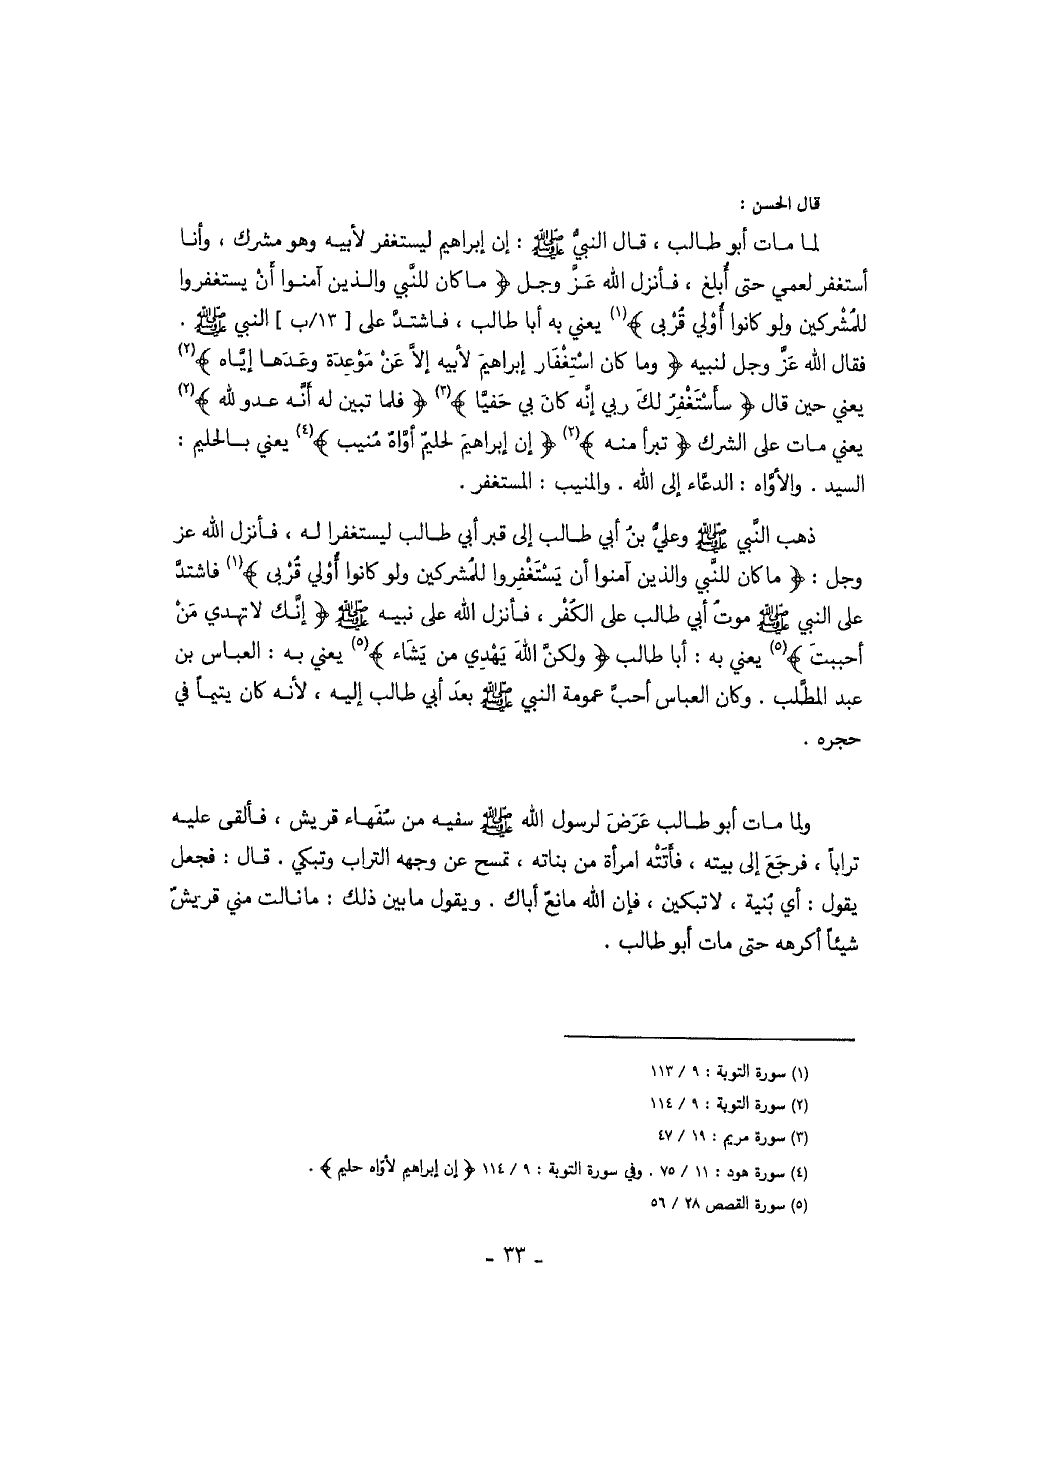 قال الحسن :
لما مات أبو طالب ، قال النبيُّ ﷺ : إن إبراهيم ليستغفر لأبيه وهو مشرك ، وأنا
أستغفر لعمي حتى أُبلغ ، فأنزل الله عَزَّ وجل ﴿ ماكان للنَّبي والذين آمنوا أَنْ يستغفروا
للمُشْركين ولو كانوا أُوْلي قُرْبى ﴾(١) يعني به أبا طالب ، فاشتدَّ على [ ١٣/ب ] النبي ﷺ .
فقال الله عَزَّ وجل لنبيه ﴿ وما كان اسْتِغْفَار إبراهيمَ لأبيه إلاَّ عَنْ مَوْعِدَة وعَدَها إيَّاه ﴾(٢)
يعني حين قال ﴿ سأَسْتَغْفِرُ لكَ ربي إنَّه كانَ بي حَفيَّا ﴾(٣) ﴿ فلما تبين له أَنَّه عدو لله ﴾(٢)
يعني مات على الشرك ﴿ تبرأ منه ﴾(٢) ﴿ إن إبراهيمَ لحليمٌ أوَّاهٌ مُنيب ﴾(٤) يعني بالحليم :
السيد . والأوَّاه : الدعَّاء إلى الله . والمنيب : المستغفر .
ذهب النَّبي ﷺ وعليُّ بنُ أبي طالب إلى قبر أبي طالب ليستغفرا له ، فأنزل الله عز
وجل : ﴿ ماكان للنَّبي والذين آمنوا أن يَسْتَغْفِروا للمُشركين ولو كانوا أُوْلي قُرْبى ﴾(١) فاشتدَّ
على النبي ﷺ موتُ أبي طالب على الكُفْر ، فأنزل الله على نبيه ﷺ ﴿ إنَّك لاتهدي مَنْ
أحببتَ ﴾(٥) يعني به : أبا طالب ﴿ ولكنَّ اللهَ يَهْدِي من يَشَاء ﴾(٥) يعني به : العباس بن
عبد المطَّلب . وكان العباس أحبَّ عمومة النبي ﷺ بعدَ أبي طالب إليه ، لأنه كان يتيماً في
حجره .
ولما مات أبو طالب عَرَضَ لرسول الله ﷺ سفيه من سُفَهاء قريش ، فألقى عليه
تراباً ، فرجَعَ إلى بيته ، فأَتَتْه امرأة من بناته ، تمسح عن وجهه التراب وتبكي . قال : فجعل
يقول : أي بُنية ، لاتبكين ، فإن الله مانعٌ أباك . ويقول مابين ذلك : مانالت مني قريشٌ
شيئاً أكرهه حتى مات أبو طالب .
(١) سورة التوبة : ٩ / ١١٣
(٢) سورة التوبة : ٩ / ١١٤
(٣) سورة مريم : ١٩ / ٤٧
(٤) سورة هود : ١١ / ٧٥ . وفي سورة التوبة : ٩ / ١١٤ ﴿ إن إبراهيم لأوّاه حليم ﴾ .
(٥) سورة القصص ٢٨ / ٥٦
- ٣٣ -